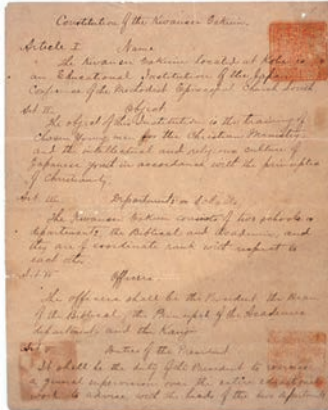 Constitution of the Kwansei Gakuin.
Article I Name
The Kwansei Gakuin located at Kobe is
an Educational Institution of the Japan
Conference of the Methodist Episcopal Church South
Art II Object
The object of the Institution is the training of
Chosen Young men for the Christian Ministry
and the intellectual and religious culture of
Japanese youth in accordance with the principles
of Christianity.
Art III Departments or Schools
The Kwansei Gakuin consists of two schools or
departments, the Biblical and Academic, and
they are of coordinate rank with respect to
each other.
Art IV Officers
The officers shall be the President, the Dean
of the Biblical, the Principal of the Academic
department, and the
Art V Duties of the President
It shall be the duty of the President to exercise
a general supervision over the entire educational
work to advise with the heads of the two departments